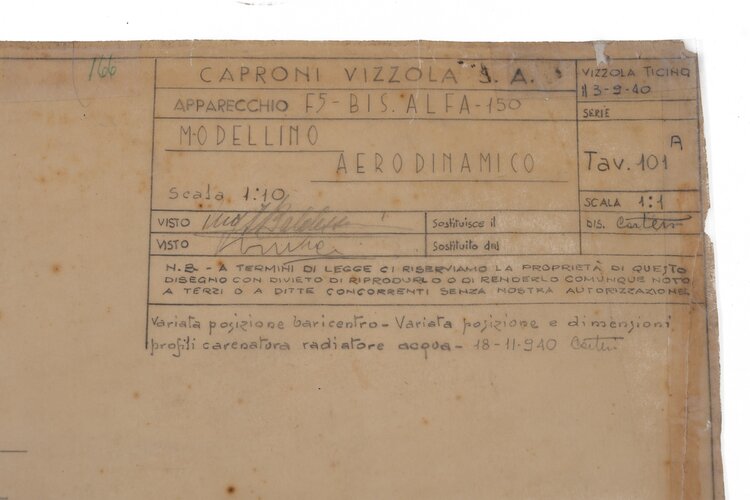 166
CAPRONI VIZZOLA S.A.
APPARECCHIO F5-BIS.ALFA-150
MODELLINO
AERODINAMICO
Scala 1:10
VISTO
VISTO
Sostituisce il
Sostituito dal
VIZZOLA TICINO
il 3-9-40
SERIE
A
Tav. 101
SCALA 1:1
DIS.
N.B - A TERMINI DI LEGGE CI RISERVIAMO LA PROPRIETÀ DI QUESTO
DISEGNO CON DIVIETO DI RIPRODURLO O DI RENDERLO COMUNQUE NOTO
A TERZI O A DITTE CONCORRENTI SENZA NOSTRA AUTORIZZAZIONE.
Variata posizione baricentro - Variata posizione e dimensioni
profili carenatura radiatore acqua - 18-11-940